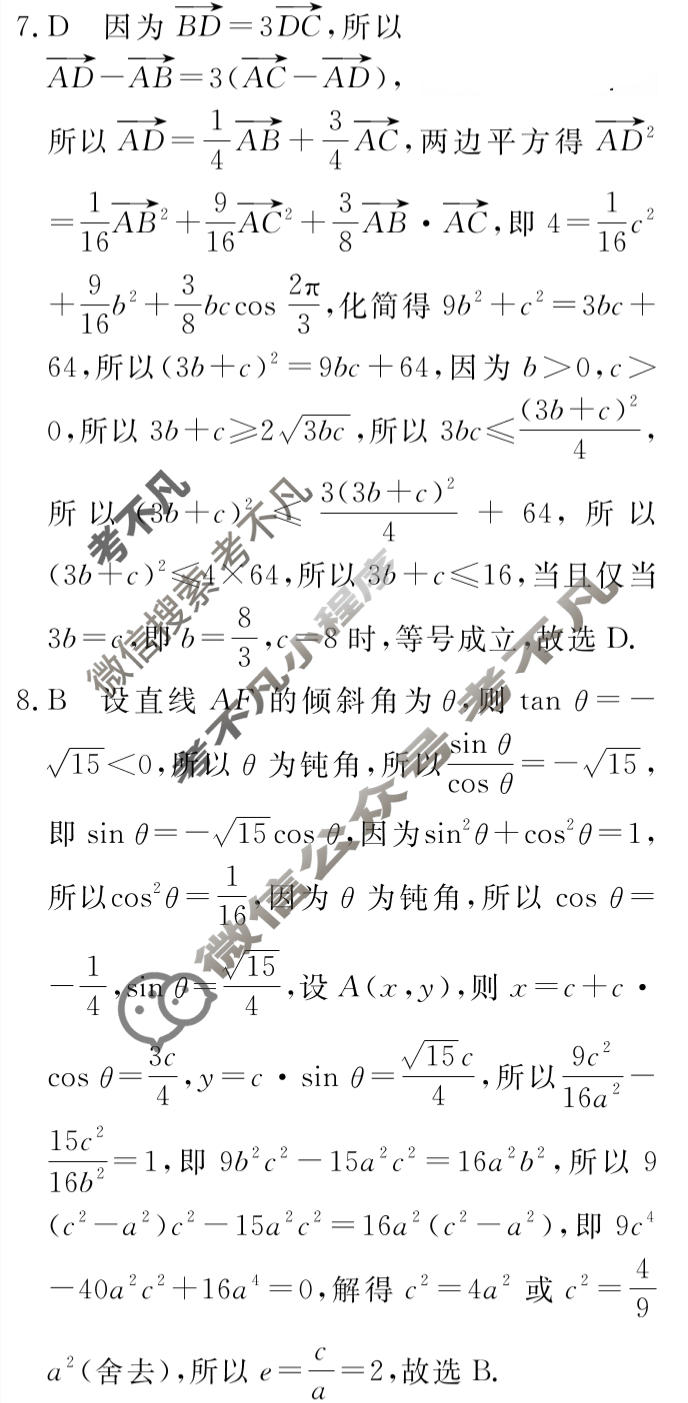 7. D 因为 $\overrightarrow{BD}=3\overrightarrow{DC}$,所以
$\overrightarrow{AD}-\overrightarrow{AB}=3(\overrightarrow{AC}-\overrightarrow{AD})$,
所以 $\overrightarrow{AD}=\frac{1}{4}\overrightarrow{AB}+\frac{3}{4}\overrightarrow{AC}$,两边平方得 $\overrightarrow{AD}^2$
$=\frac{1}{16}\overrightarrow{AB}^2+\frac{9}{16}\overrightarrow{AC}^2+\frac{3}{8}\overrightarrow{AB}\cdot\overrightarrow{AC}$,即 $4=\frac{1}{16}c^2$
$+\frac{9}{16}b^2+\frac{3}{8}bc\cos\frac{2\pi}{3}$,化简得 $9b^2+c^2=3bc+$
$64$,所以$(3b+c)^2=9bc+64$,因为 $b>0,c>$
$0$,所以 $3b+c\geqslant2\sqrt{3bc}$,所以 $3bc\leqslant\frac{(3b+c)^2}{4}$,
所以 $(3b+c)^2\leqslant\frac{3(3b+c)^2}{4}+64$, 所以
$(3b+c)^2\leqslant4\times64$,所以 $3b+c\leqslant16$,当且仅当
$3b=c$,即 $b=\frac{8}{3},c=8$ 时,等号成立,故选 D.
8. B 设直线 $AF$ 的倾斜角为 $\theta$,则 $\tan\theta=-$
$\sqrt{15}<0$,所以 $\theta$ 为钝角,所以$\frac{\sin\theta}{\cos\theta}=-\sqrt{15}$,
即 $\sin\theta=-\sqrt{15}\cos\theta$,因为$\sin^2\theta+\cos^2\theta=1$,
所以$\cos^2\theta=\frac{1}{16}$,因为 $\theta$ 为钝角,所以 $\cos\theta=$
$-\frac{1}{4},\sin\theta=\frac{\sqrt{15}}{4}$,设 $A(x,y)$,则 $x=c+c\cdot$
$\cos\theta=\frac{3c}{4},y=c\cdot\sin\theta=\frac{\sqrt{15}c}{4}$,所以$\frac{9c^2}{16a^2}-$
$\frac{15c^2}{16b^2}=1$,即 $9b^2c^2-15a^2c^2=16a^2b^2$,所以 $9$
$(c^2-a^2)c^2-15a^2c^2=16a^2(c^2-a^2)$,即 $9c^4$
$-40a^2c^2+16a^4=0$,解得 $c^2=4a^2$ 或 $c^2=\frac{4}{9}$
$a^2$(舍去),所以 $e=\frac{c}{a}=2$,故选 B.
考不凡
微信搜索 考不凡
考不凡小程序
微信公众号 考不凡